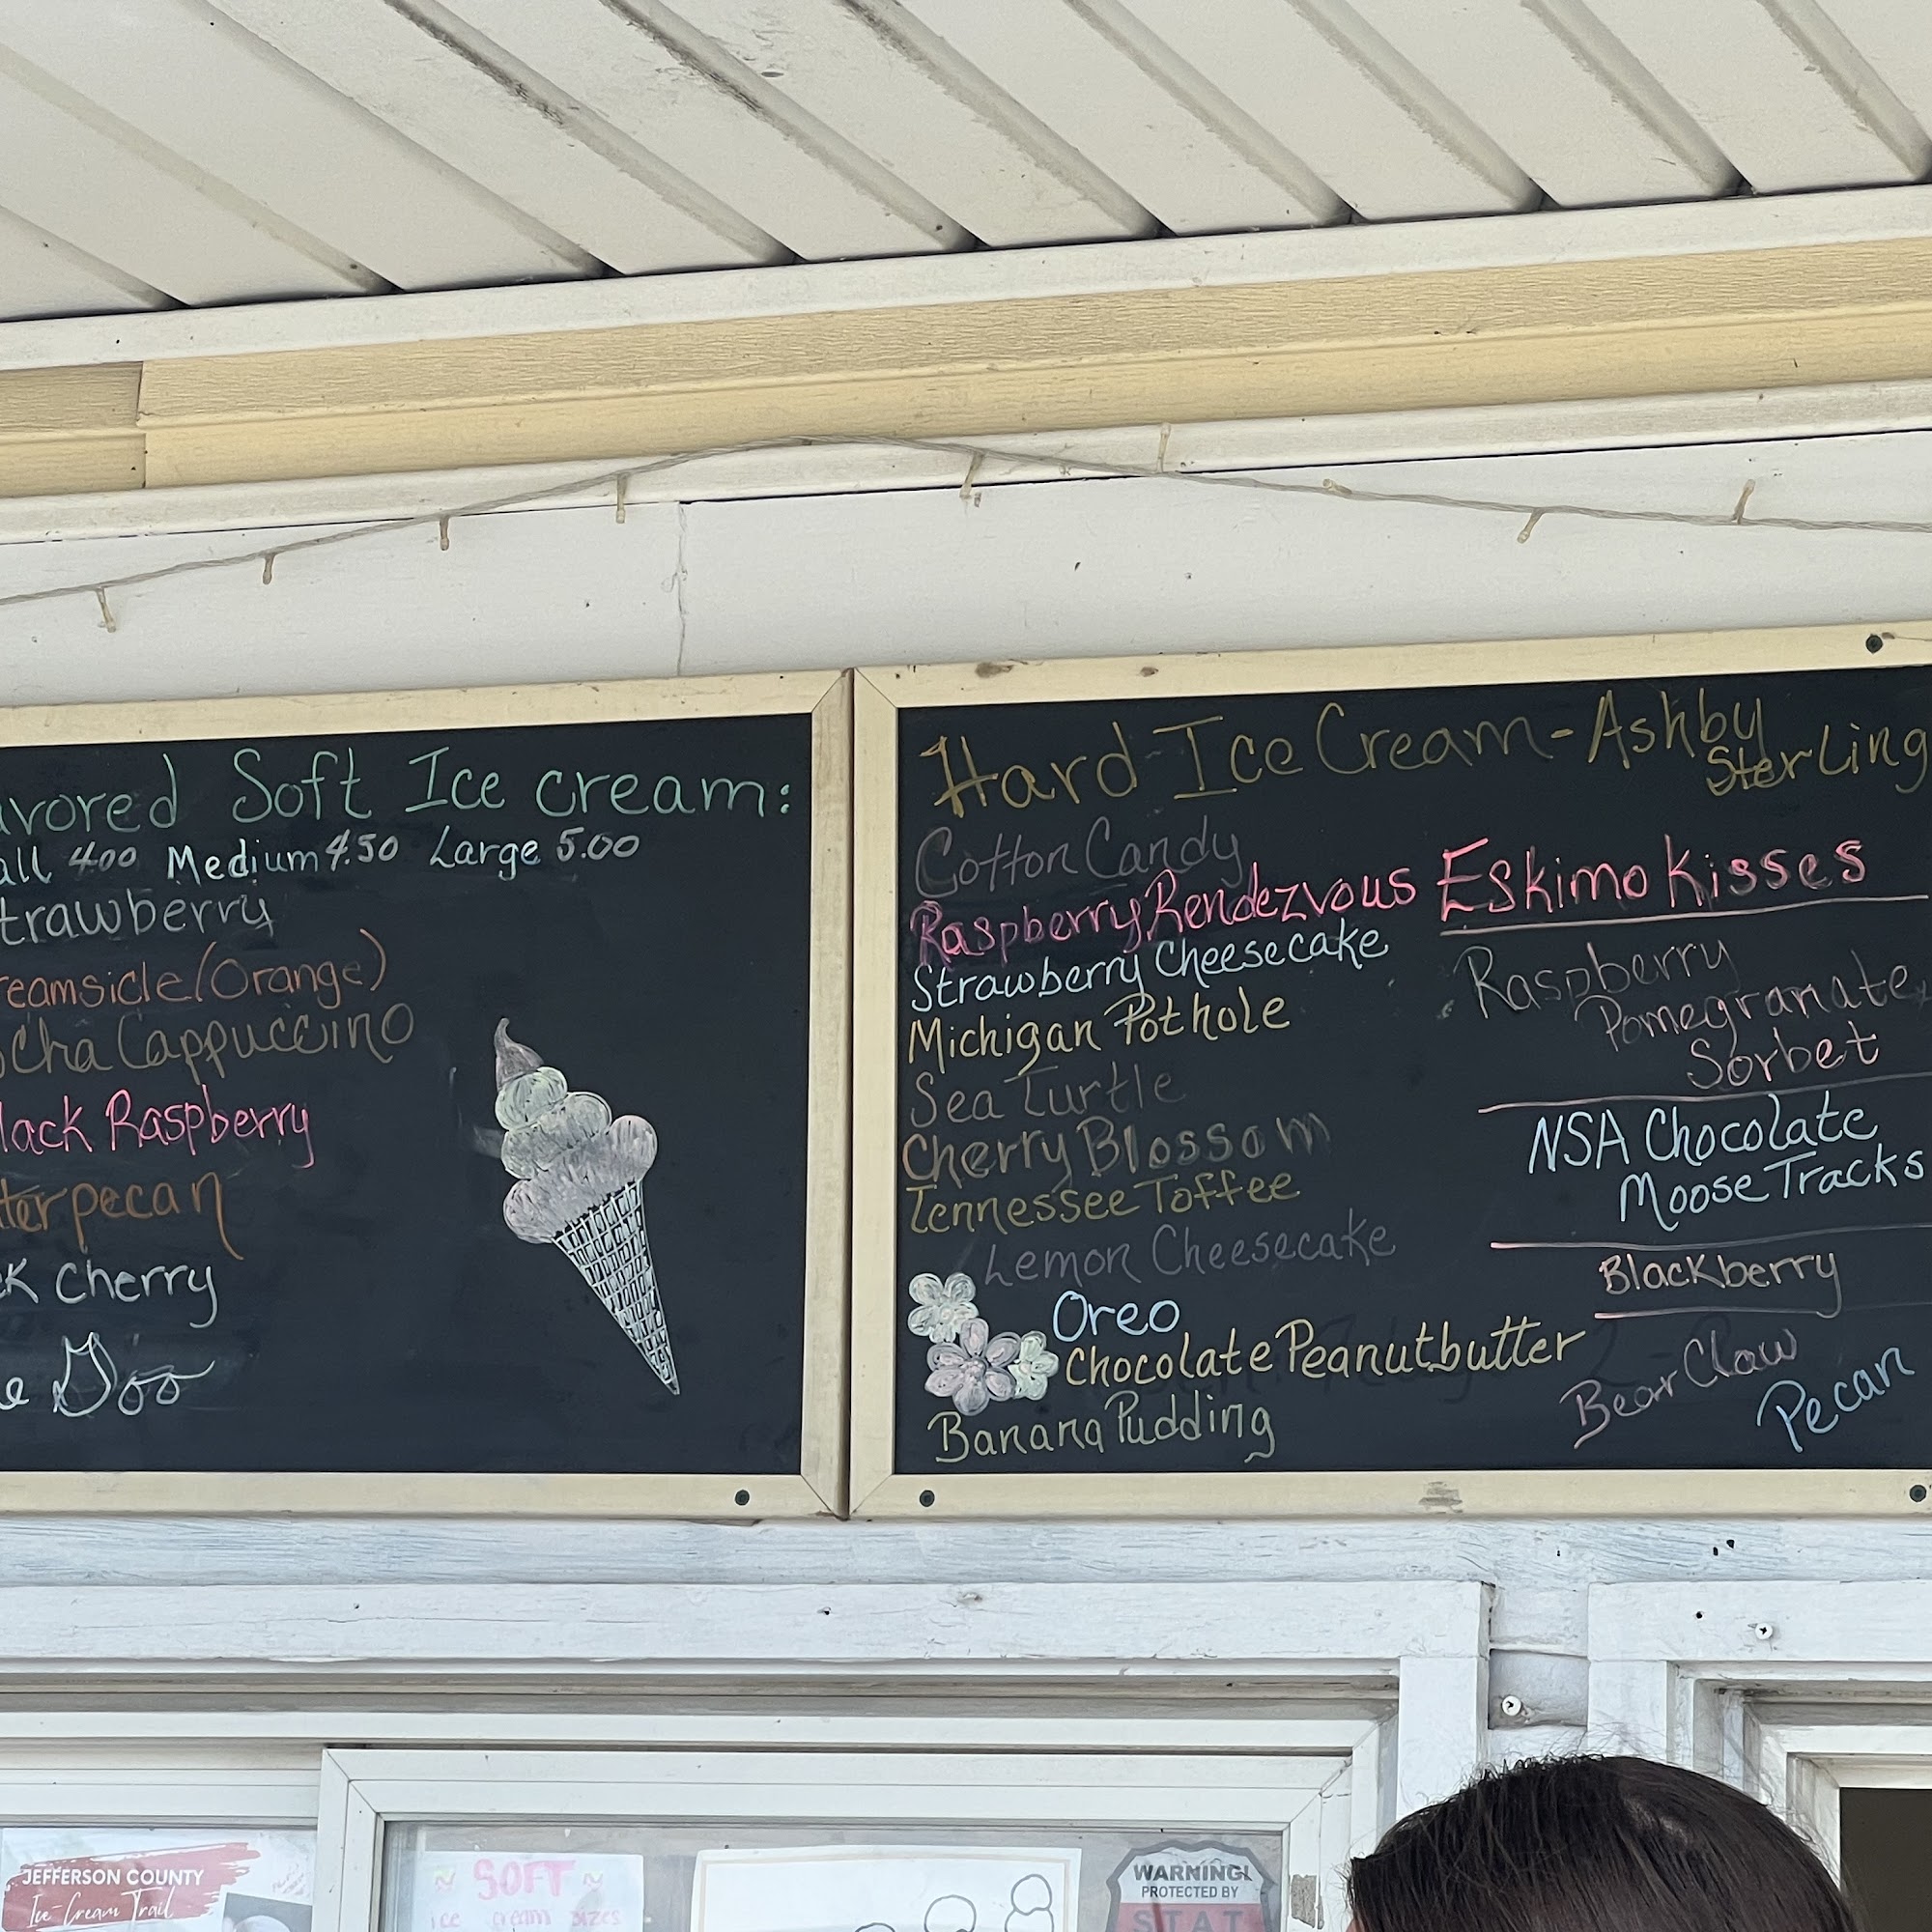 avored Soft Ice cream:
all 4.00 Medium 4.50 Large 5.00
trawberry
reamsicle (Orange)
ocha Cappuccino
lack Raspberry
tter pecan
ck Cherry
e Goo
Hard Ice Cream - Ashby
Sterling
Cotton Candy
Raspberry Rendezvous
Strawberry Cheesecake
Michigan Pothole
Sea Turtle
Cherry Blossom
Tennessee Toffee
Lemon Cheesecake
Oreo
Chocolate Peanutbutter
Banana Pudding
Eskimo Kisses
Raspberry
Pomegranate
Sorbet
NSA Chocolate
Moose Tracks
Blackberry
Bear Claw
Pecan
JEFFERSON COUNTY
Ice Cream Trail
~ SOFT ~
ice cream sizes
WARNING!
PROTECTED BY
STAT